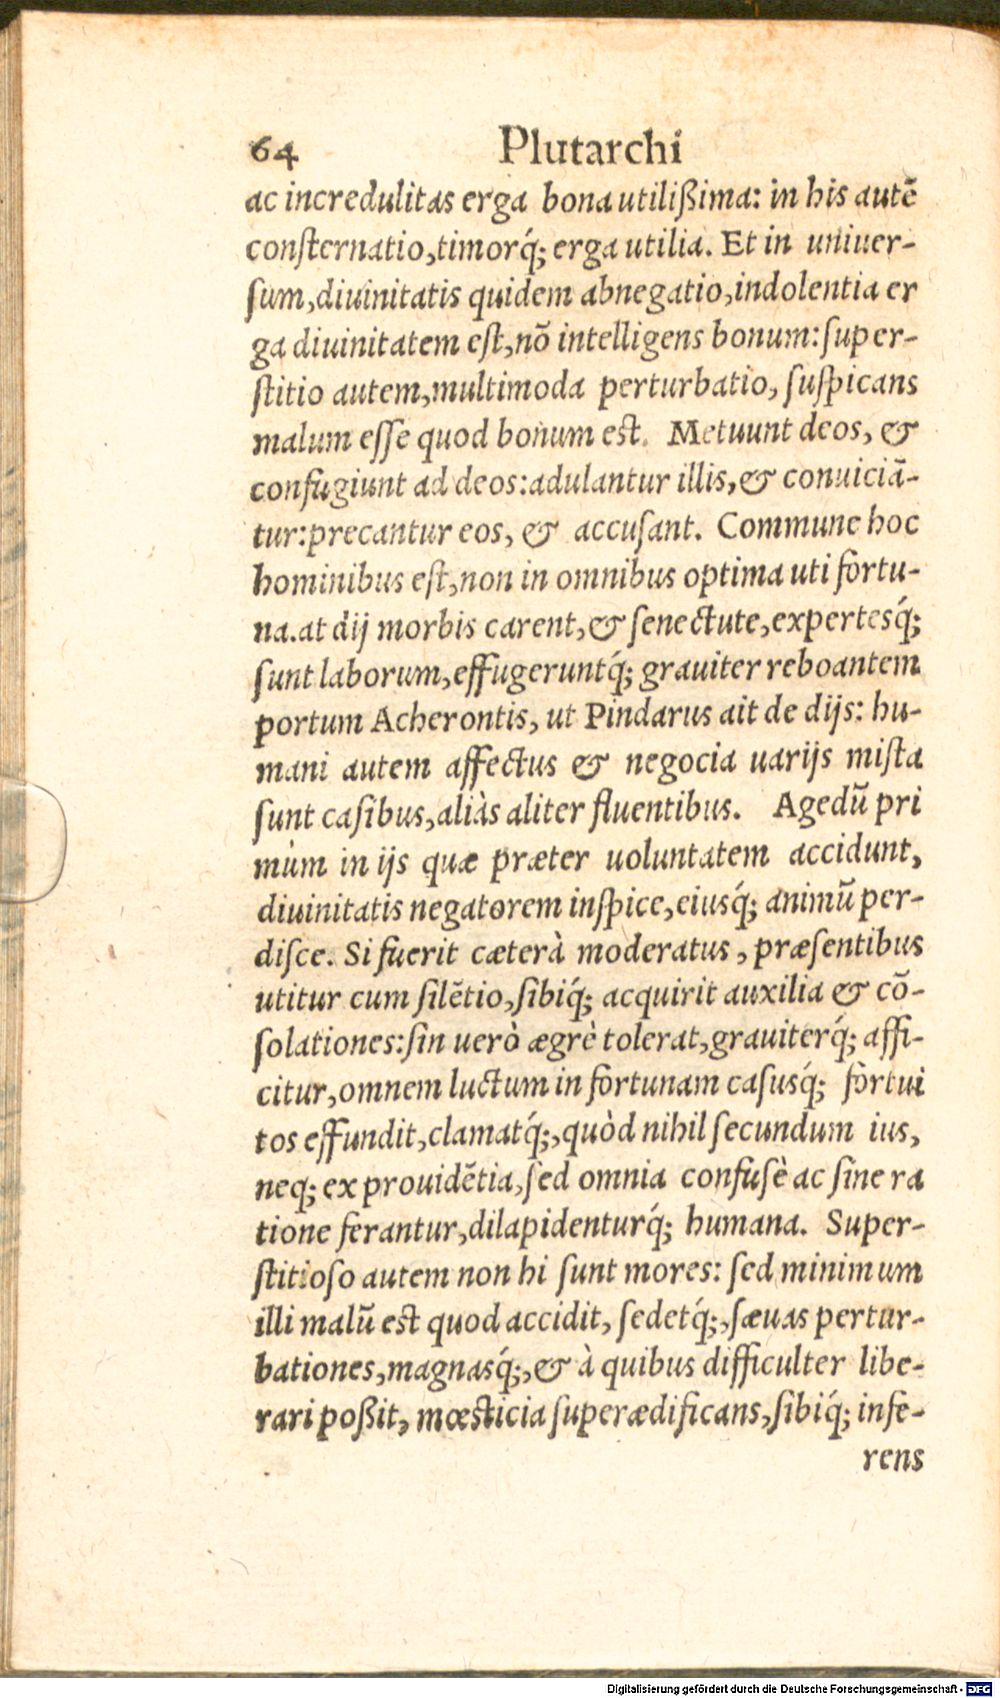 64 Plutarchi
ac incredulitas erga bona utilißima: in his autē
conſternatio,timorq́; erga utilia. Et in uniuer-
ſum,diuinitatis quidem abnegatio,indolentia er
ga diuinitatem eſt,nō intelligens bonum:ſuper-
ſtitio autem,multimoda perturbatio, ſuſpicans
malum eſſe quod bonum est. Metuunt deos, &
confugiunt ad deos:adulantur illis,& conuiciā-
tur:precantur eos, & accuſant. Commune hoc
hominibus eſt,non in omnibus optima uti fortu-
na.at dij morbis carent,& ſenectute,expertesq́;
ſunt laborum,effugeruntq́; grauiter reboantem
portum Acherontis, ut Pindarus ait de dijs: hu-
mani autem affectus & negocia uarijs miſta
ſunt caſibus,aliàs aliter fluentibus. Agedū pri
mùm in ijs quæ præter uoluntatem accidunt,
diuinitatis negatorem inſpice,eiusq́; animū per-
diſce. Si fuerit cæterà moderatus, præſentibus
utitur cum ſilētio,ſibiq́; acquirit auxilia & cō-
ſolationes:ſin uerò ægrè tolerat,grauiterq́; affi-
citur,omnem luctum in fortunam casusq́; fortui
tos effundit,clamatq́;,quòd nihil ſecundum ius,
neq; ex prouidētia,ſed omnia confuſè ac ſine ra
tione ferantur,dilapidenturq́; humana. Super-
ſtitioſo autem non hi ſunt mores: ſed minimum
illi malū est quod accidit, ſedetq́;,ſæuas pertur-
bationes,magnasq́;,& à quibus difficulter libe-
rari poßit, mœsticia ſuperædificans,ſibiq́; infe-
rens
Digitalisierung gefördert durch die Deutsche Forschungsgemeinschaft - DFG